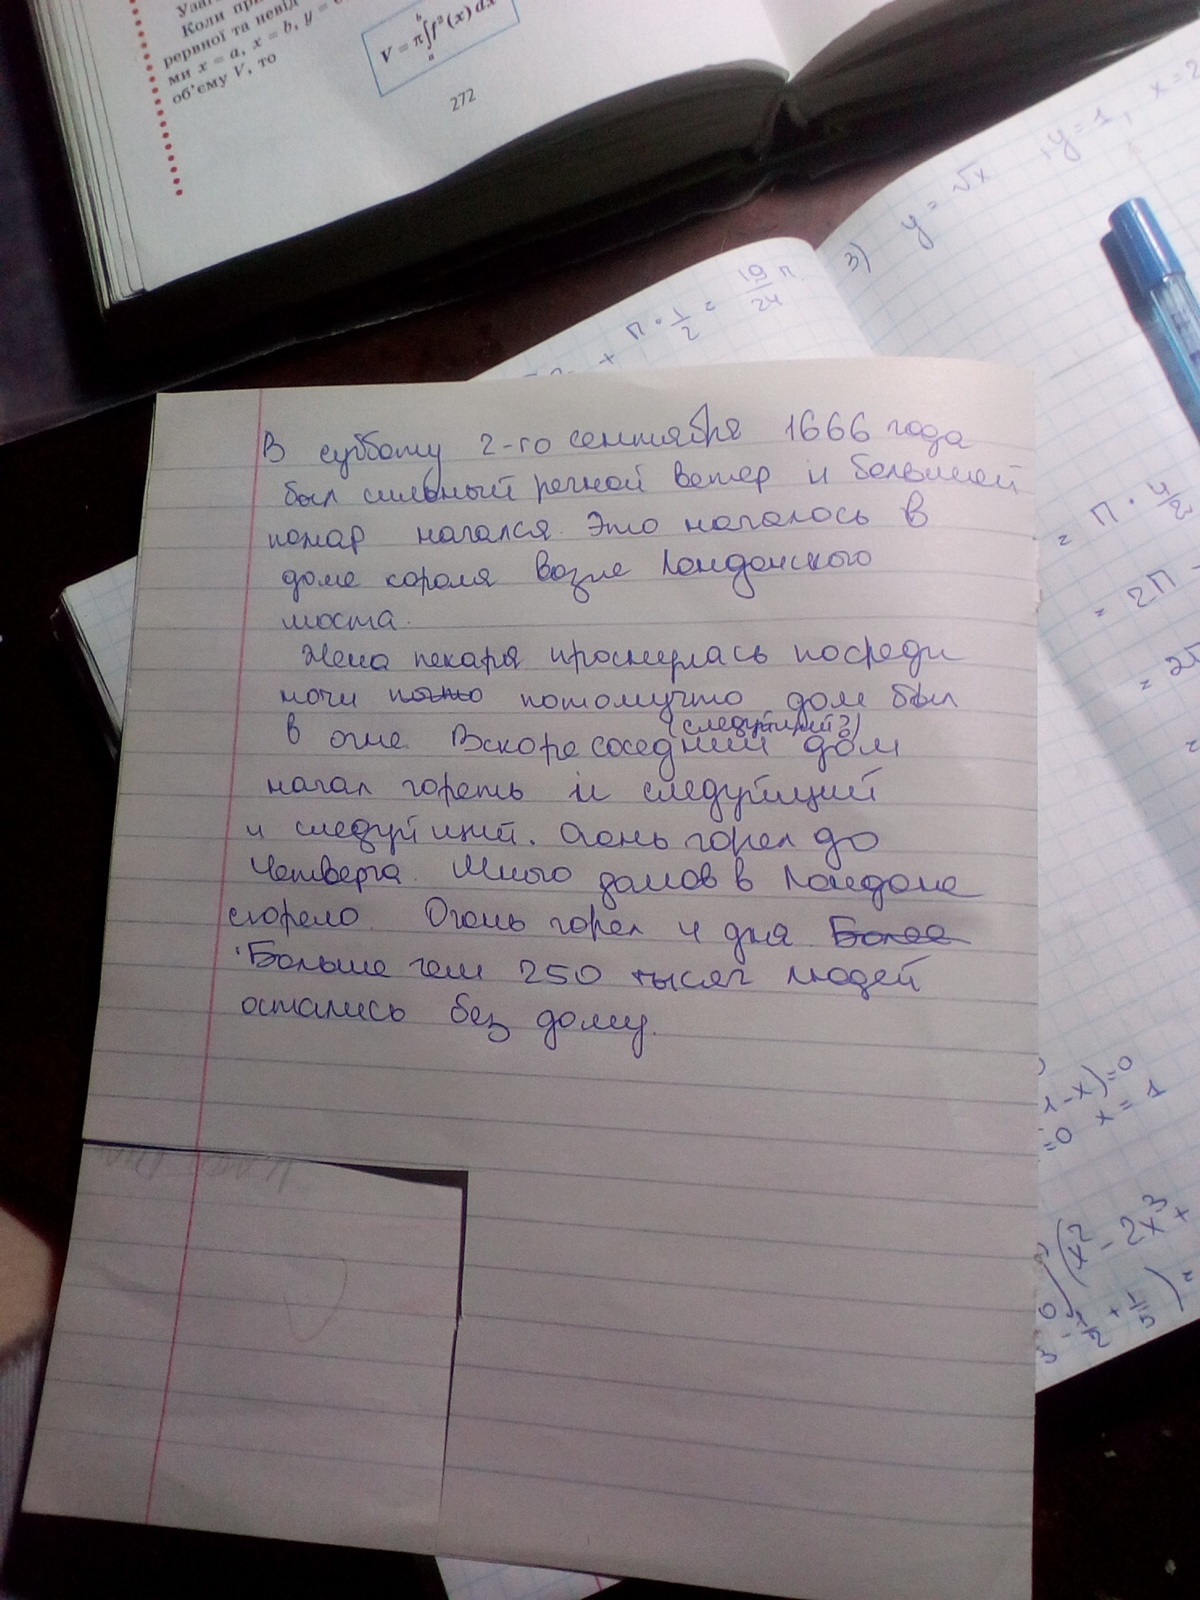 Коли при
рервної та невід
ми x = a, x = b, y =
об'єму V, то
V = π∫f²(x)dx
b
a
272
+ π · 1/2 = 19/24 π
3) y = √x , y = 1, x = 2
В субботу 2-го сентября 1666 года
был сильный речной ветер и большой
пожар начался. Это началось в
доме короля возле Лондонского
моста.
Жена пекаря проснулась посреди
ночи потомучто дом был
(следуйщий?)
в огне. Вскоре соседний дом
начал гореть и следуйщий
и следуйщий. Огонь горел до
Четверга. Много домов в Лондоне
сгорело. Огонь горел 4 дня Более
Больше чем 250 тысяч людей
остались без дому.
= π · 4/2
= 2π -
= 2π
1-x)=0
=0 x = 1
(x² - 2x³ +
+ 1/5) =